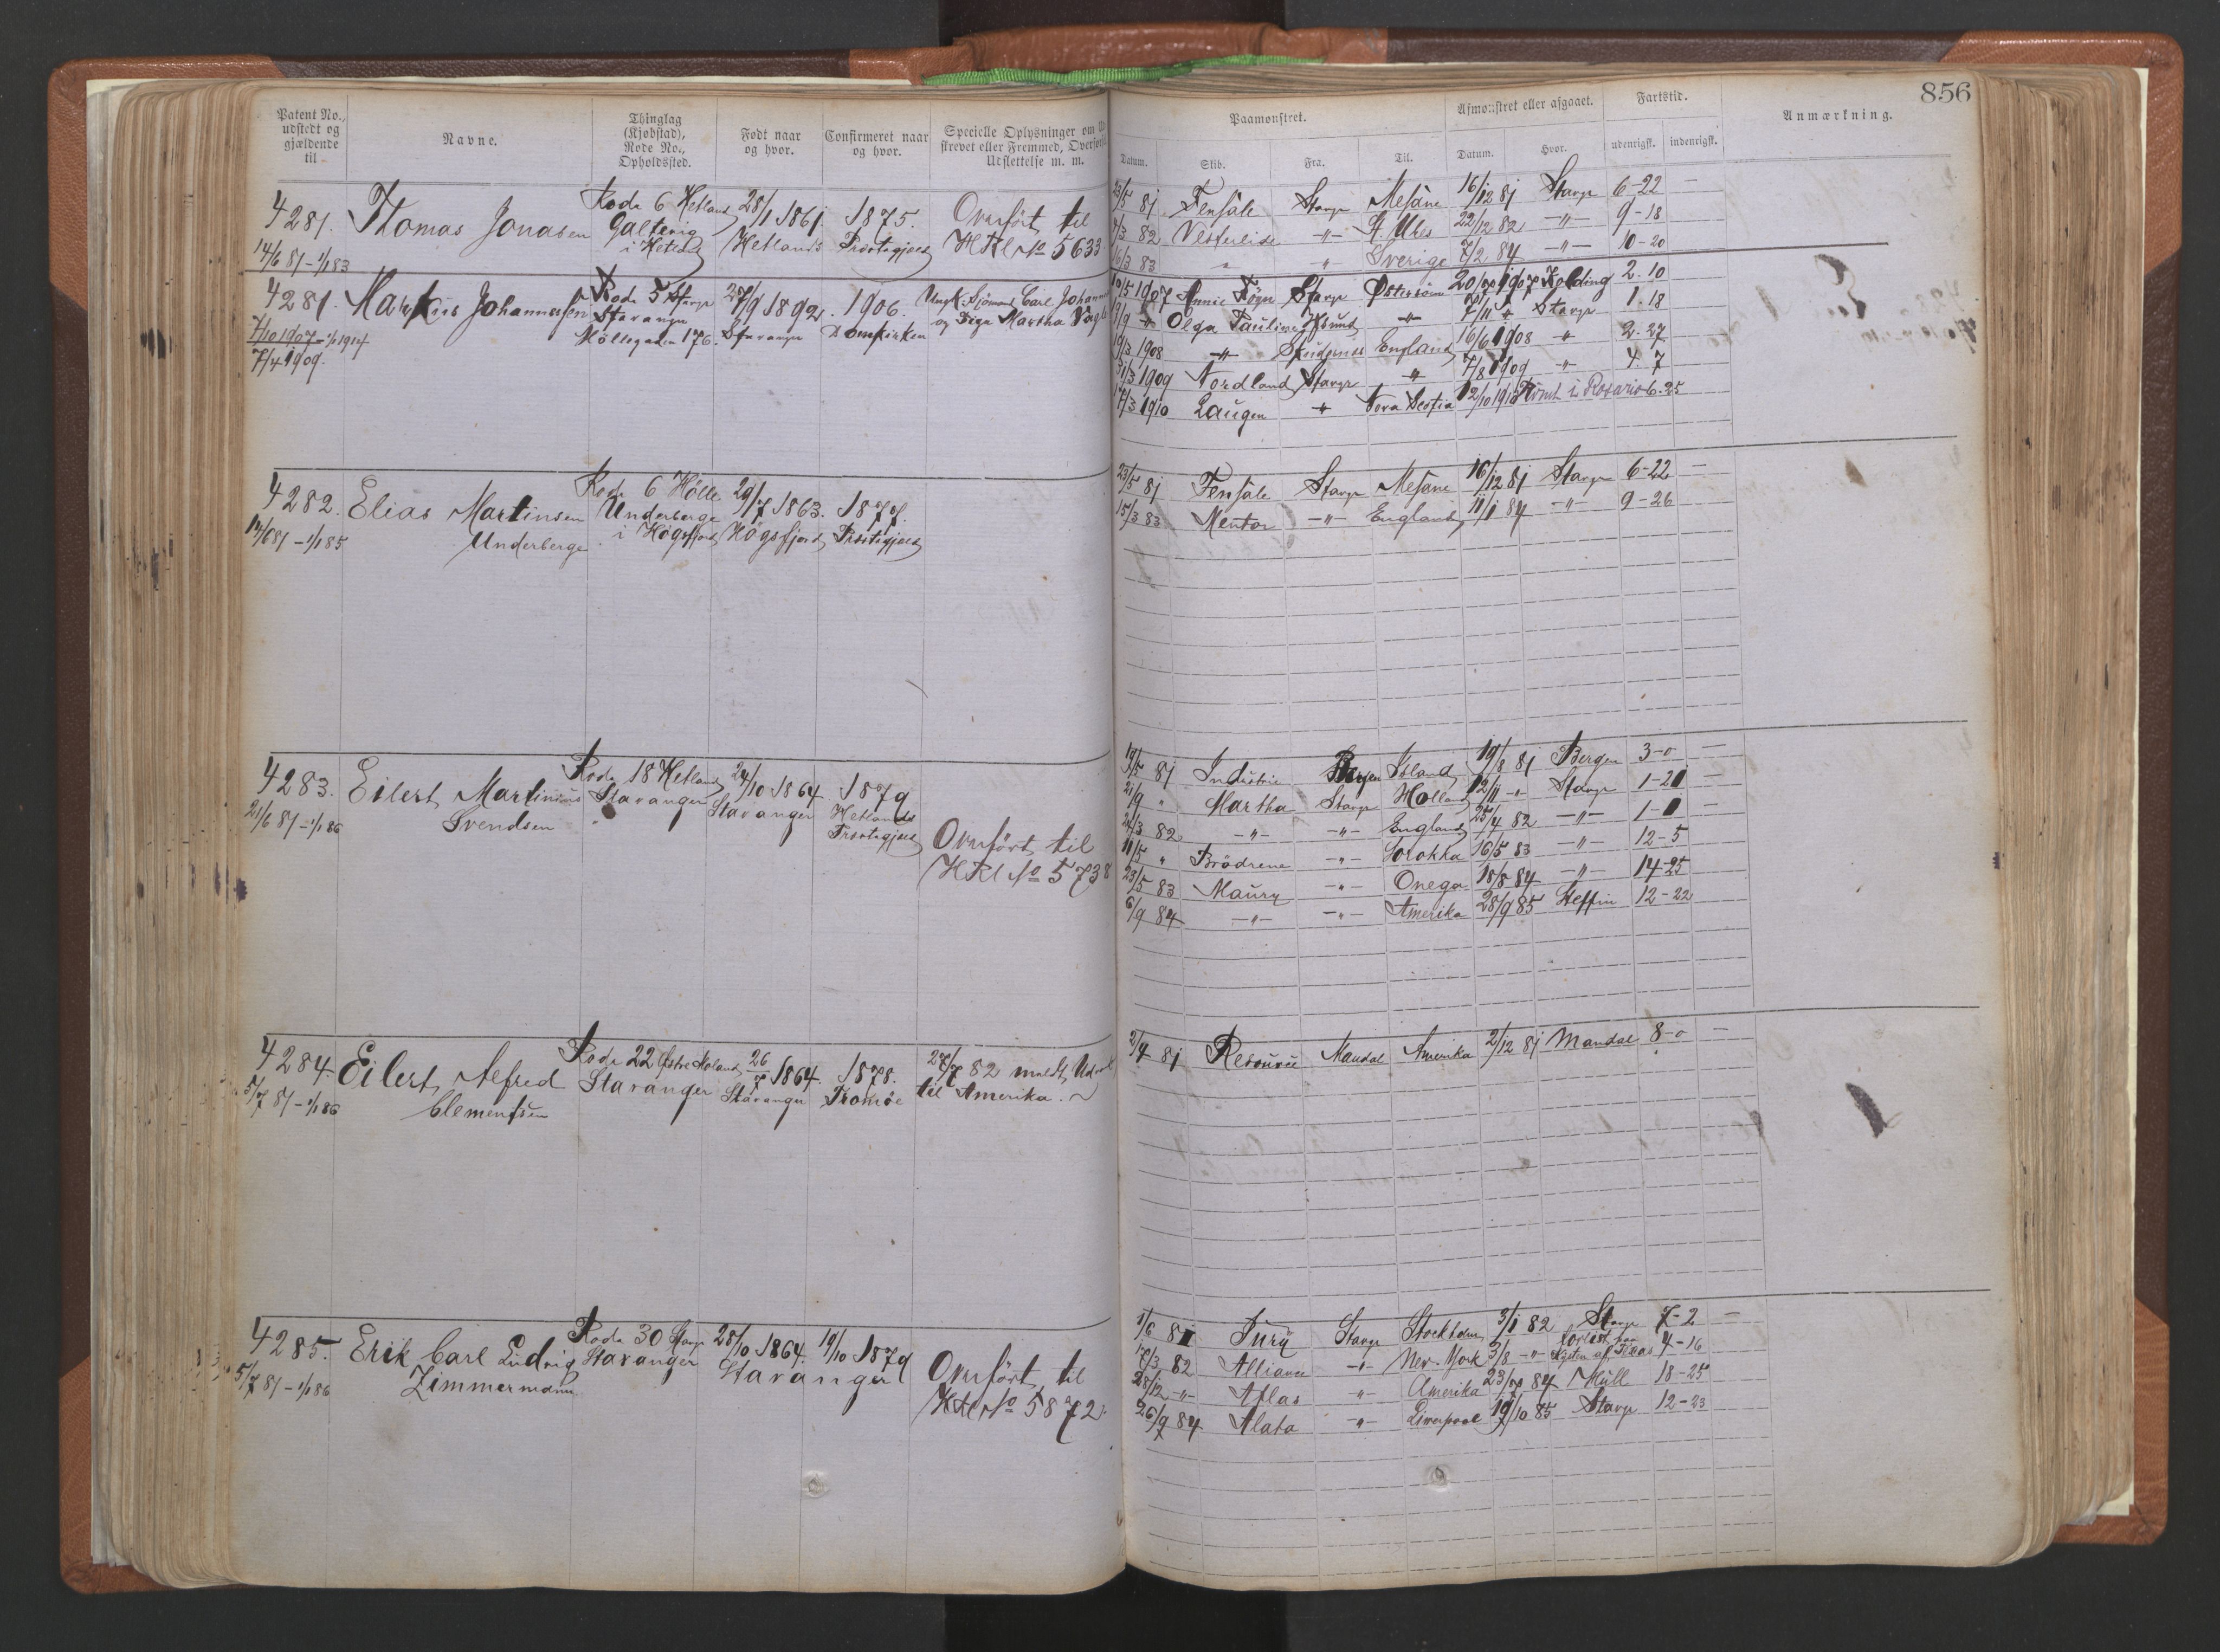 856
Patent No., udstedt og gjældende til
Navne.
Thinglag (Kjøbstad), Rode No., Opholdssted.
Født naar og hvor.
Confirmeret naar og hvor.
Specielle Oplysninger om
Udslettelse m. m.
Paamønstret.
Afmønstret eller afgaaet.
Fartstid.
Anmærkning.
Datum. Skib. Fra. Til. Datum. Hvor. udenrigsk. indenrigsk.
4281. Thomas Jonasen Rode 6 Hetland 28/1 1861. 1875. Overført til
i Hetland Hetlands Provstigjeld HRl No 5633
14/6 81 – 1/1 83
23/5 81 Stavgr 16/12 81 Stavgr 6–22 –
82 –"– 22/12 82 –"– 9–18
16/3 83 " " Sverige 7/2 84 –"– 10–20
4281. Johannessen Rode 5 Stavgr 27/9 1892. 1906. Carl
Stavanger Stavanger Domkirken og Martha
7/10 1907 – 1/1 1914 Møllegaden 176.
7/4 1909.
1907 Annie Stavgr Østersøen 1907 Kolding 2. 10
Olga Pauline " 7/11 " Stavgr 1. 18
1908 –"– England 16/6 1908 " 2. 27
31/3 1909 Nordland Stavgr " 7/8 1909 –"– 4. 7
17/3 1910 Laugen " Nova Scotia 12/10 1910 Rømt i Rosario 6. 25
4282. Elias Martinsen Rode 6 Hølle 29/7 1863. 1877.
14/6 81 – 1/1 85 Underberge Underberge i Høgsfjord Høgsfjord Provstigjeld
23/5 81 Stavgr 16/12 81 Stavgr 6–22 –
15/3 83 Mentor –"– England 11/1 84 –"– 9–26
4283. Eilert Martinius Rode 18 Hetland 24/10 1864 1879
Svendsen Stavanger Stavanger Hetlands Provstigjeld
21/6 81 – 1/1 86
Overført til
HRl No 5738
19/5 81 Industrie Bergen Island 19/8 81 Bergen 3–0 –
21/9 " Martha Stavgr Holland 12/11 –"– Stavgr 1–21 –
24/3 82 –"– –"– England 25/4 82 –"– –
11/5 " Brødrene –"– Sorokka 16/5 83 –"– 12–5
23/5 83 Maury –"– Onega 18/8 84 –"– 14–25
6/9 84 –"– –"– Amerika 28/9 85 Stettin 12–22
4284. Eilert Alfred Rode 22 Stavanger 26/7 1864. 1878. 27/7 82 meldt
5/7 81 – 1/1 86 Clementsen Stavanger Tromsøe til Amerika.
2/4 81 Mandal Amerika 2/12 81 Mandal 8–0 –
4285. Erik Carl Ludvig Rode 30 Stavgr 28/10 1864. 19/10 1879
5/7 81 – 1/1 86 Zimmermann Stavanger Stavanger
Overført til
HRl No 5872.
1/6 81 Stavgr Stockholm 3/1 82 Stavgr 7–2 –
82 Alliance –"– New-York 3/8 –"– Forlist paa Kysten af Texas 4–16
28/12 –"– Atlas –"– Amerika 84 Hull 18–25
26/9 84 Alata –"– Liverpool 19/10 85 Stavgr 12–23